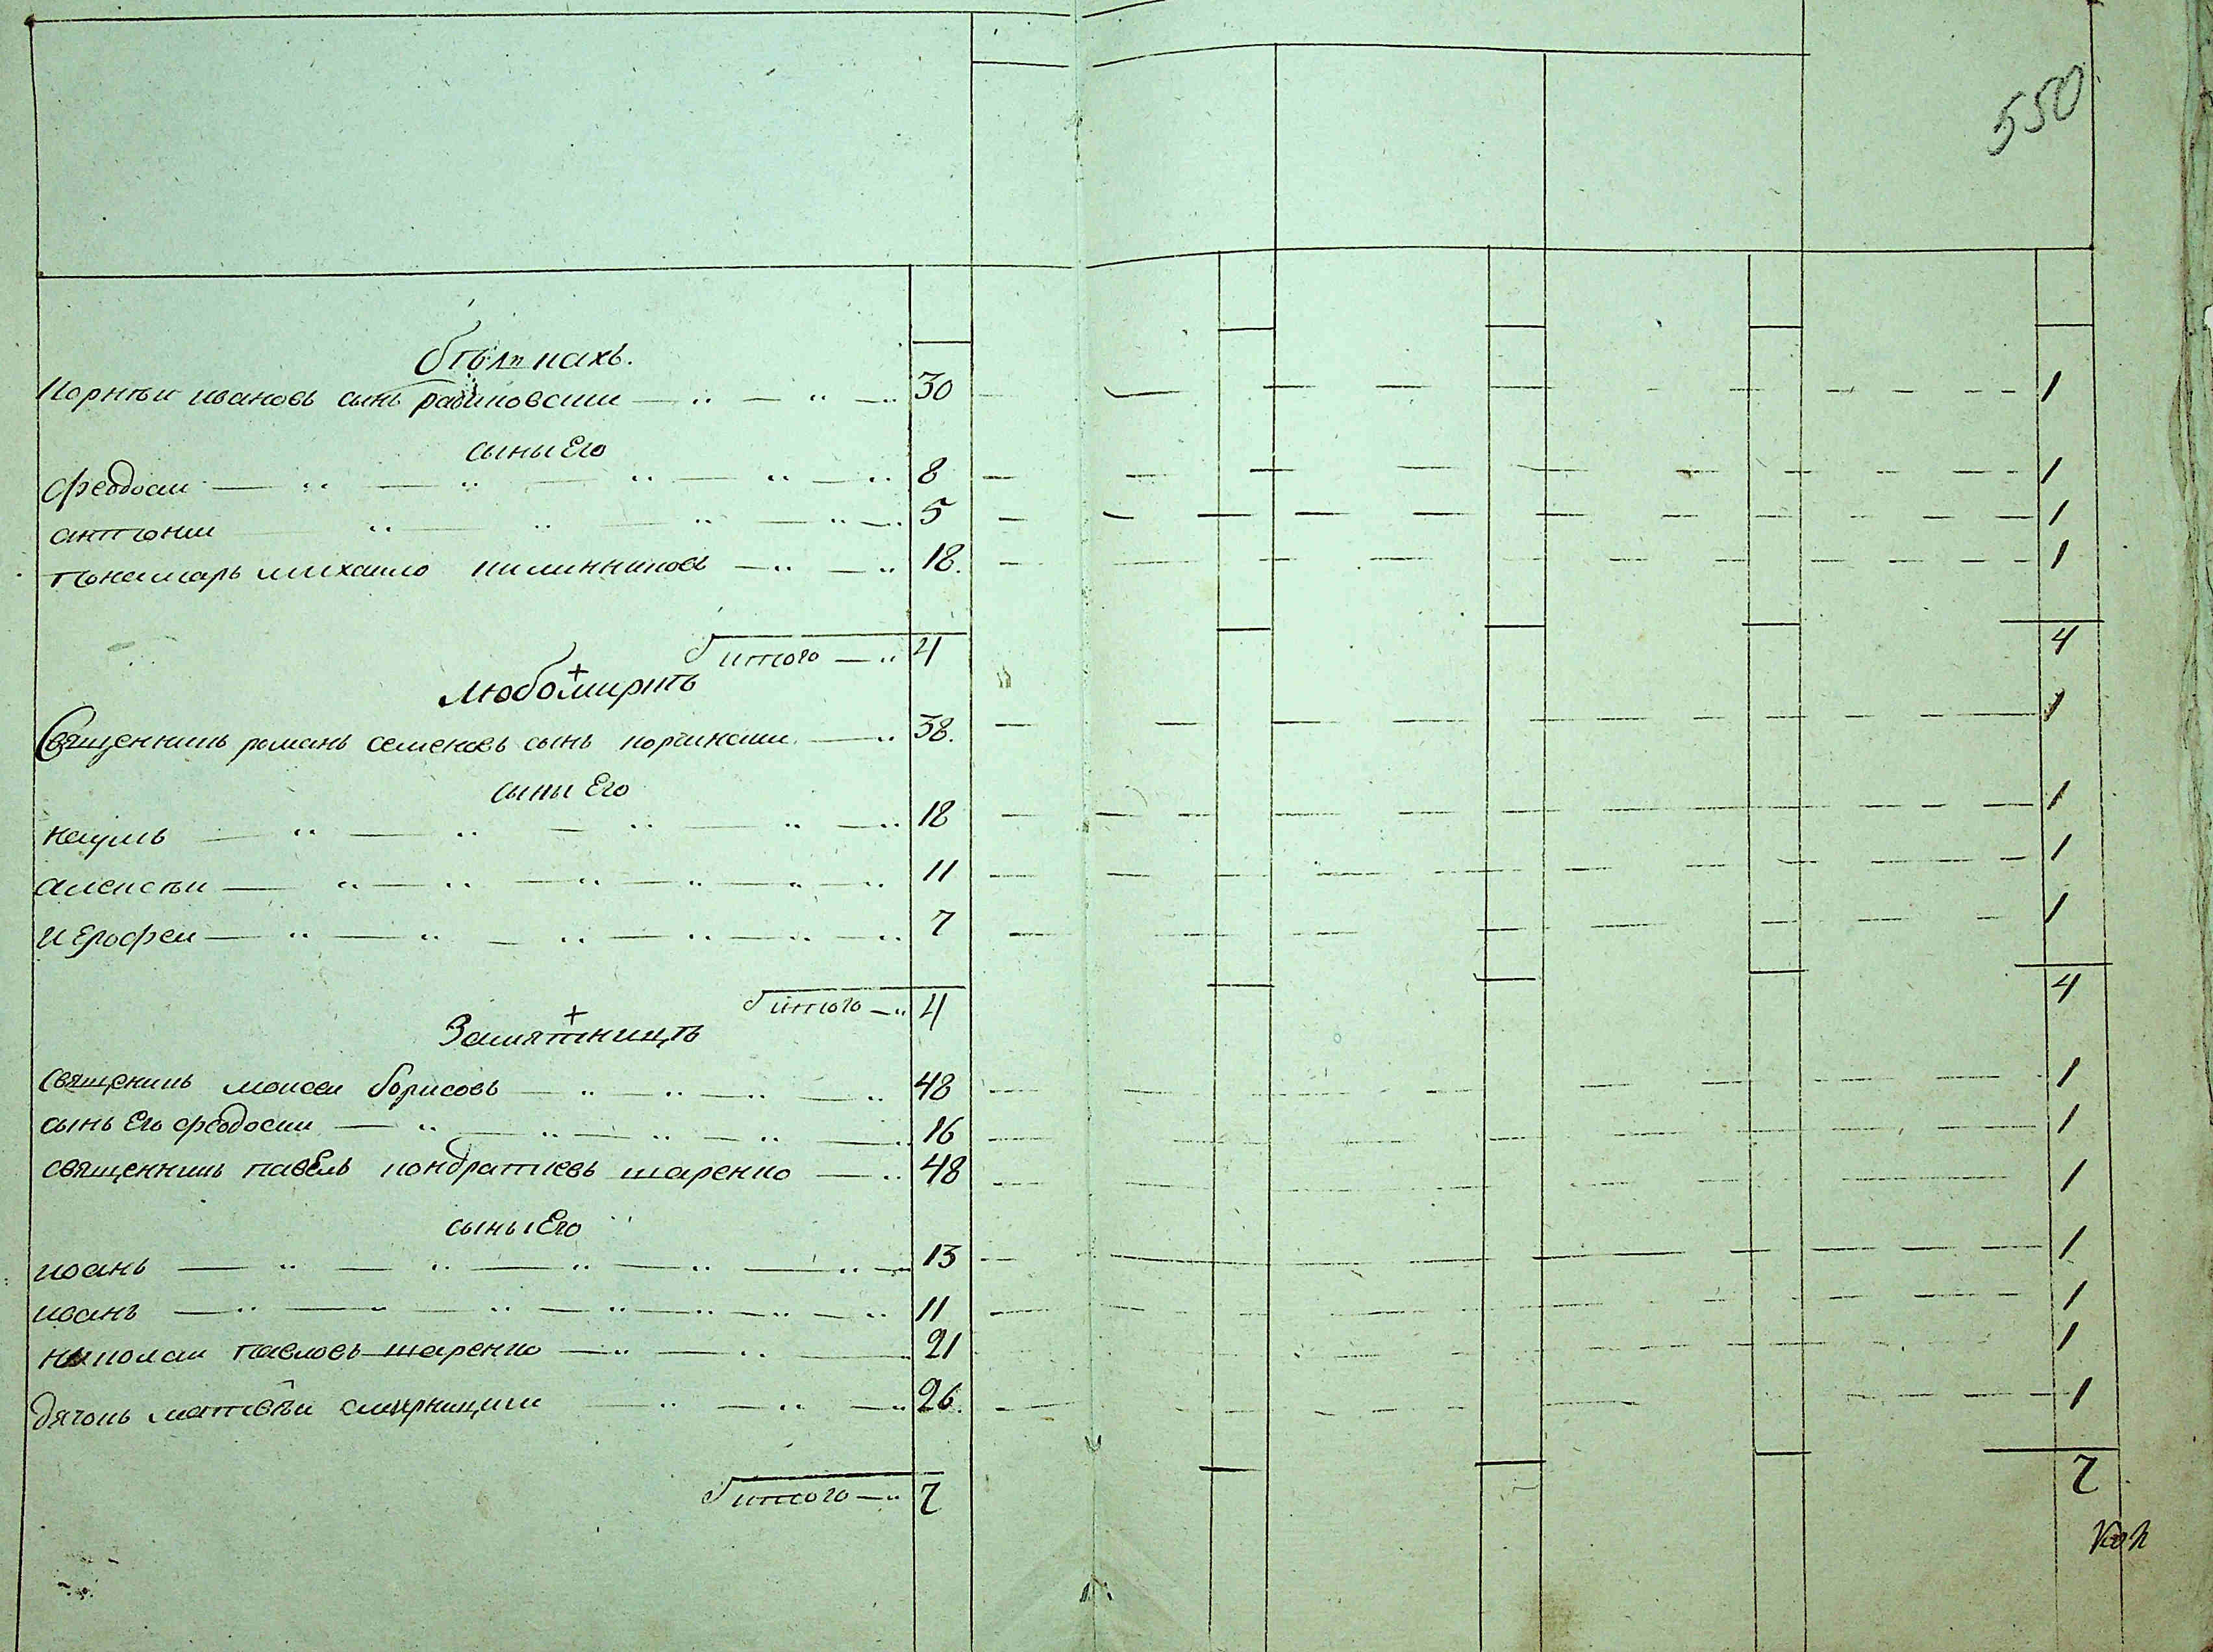 550
Корнѣи ивановъ сынъ рабиновски 30 1
сыны Его
феодоси 8 1
антони 5 1
понамарь михаило 18. 1
итого 4 4
Любомирпѣ
Священникъ романъ семеновъ сынъ 38. 1
сыни Его
наумъ 18 1
алексѣи 11 1
иерофеи 7 1
итого 4 4
Замятницѣ
священикъ моисеи борисовъ 48 1
сынъ Его феодосии 16 1
священникъ павелъ кондратиевъ шаренко 48 1
сыны Его
иоанъ 13 1
иванъ 11 1
николаи павловъ шаренко 21 1
дячокъ матвѣи 26. 1
итого 7 7